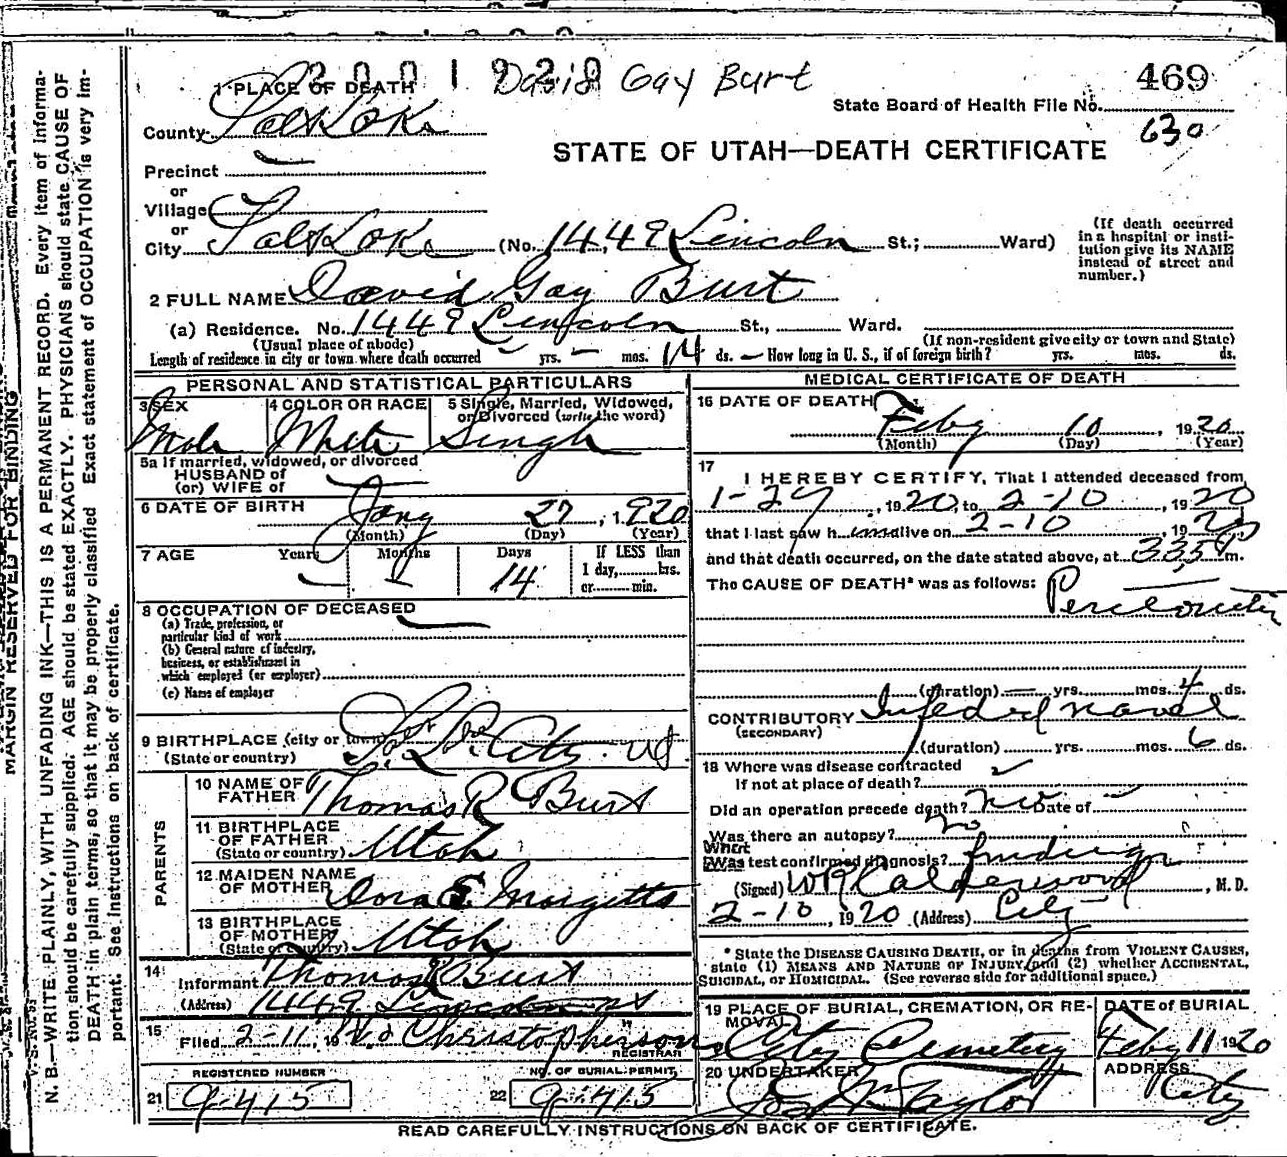 2001920 David Gay Burt
469
1 PLACE OF DEATH
State Board of Health File No.
630
County Salt Lake
STATE OF UTAH—DEATH CERTIFICATE
Precinct
or
Village
or
City Salt Lake (No. 1449 Lincoln St.; Ward)
(If death occurred in a hospital or institution give its NAME instead of street and number.)
2 FULL NAME David Gay Burt
(a) Residence. No. 1449 Lincoln St., Ward.
(Usual place of abode) (If non-resident give city or town and State)
Length of residence in city or town where death occurred – yrs. – mos. 14 ds. – How long in U. S., if of foreign birth? yrs. mos. ds.
PERSONAL AND STATISTICAL PARTICULARS
3 SEX 4 COLOR OR RACE 5 Single, Married, Widowed, or Divorced (write the word)
Male White Single
5a If married, widowed, or divorced
HUSBAND of
(or) WIFE of
6 DATE OF BIRTH Jany 27, 1920
(Month) (Day) (Year)
7 AGE Years Months Days If LESS than
– – 14 1 day, hrs.
or min.
8 OCCUPATION OF DECEASED
(a) Trade, profession, or
particular kind of work
(b) General nature of industry,
business, or establishment in
which employed (or employer)
(c) Name of employer
9 BIRTHPLACE (city or town) S. L. City Ut
(State or country)
PARENTS
10 NAME OF
FATHER Thomas R Burt
11 BIRTHPLACE
OF FATHER
(State or country) Utah
12 MAIDEN NAME
OF MOTHER Dora E Margetts
13 BIRTHPLACE
OF MOTHER
(State or country) Utah
14 Informant Thomas R Burt
(Address) 1449 Lincoln St
15 Filed 2-11, 19 Christopherson
REGISTRAR
REGISTERED NUMBER NO. OF BURIAL PERMIT
21 9-415 22 9-415
MEDICAL CERTIFICATE OF DEATH
16 DATE OF DEATH
Feby 10, 1920
(Month) (Day) (Year)
17
I HEREBY CERTIFY, That I attended deceased from
1-27, 1920, to 2-10, 1920
that I last saw him alive on 2-10, 1920
and that death occurred, on the date stated above, at 335 P m.
The CAUSE OF DEATH* was as follows: Peritonitis
(duration) – yrs. mos. 4 ds.
CONTRIBUTORY Infected navel
(SECONDARY)
(duration) yrs. mos. 6 ds.
18 Where was disease contracted
If not at place of death?
Did an operation precede death? no Date of
Was there an autopsy? no
What
Was test confirmed diagnosis? findings
(Signed) W R Calderwood, M. D.
2-10, 1920 (Address) City
* State the DISEASE CAUSING DEATH, or in deaths from VIOLENT CAUSES,
state (1) MEANS AND NATURE OF INJURY, and (2) whether ACCIDENTAL,
SUICIDAL, or HOMICIDAL. (See reverse side for additional space.)
19 PLACE OF BURIAL, CREMATION, OR REMOVAL DATE OF BURIAL
City Cemetery Feby 11 1920
20 UNDERTAKER ADDRESS
Taylor City
READ CAREFULLY INSTRUCTIONS ON BACK OF CERTIFICATE.
MARGIN RESERVED FOR BINDING
N. B.—WRITE PLAINLY, WITH UNFADING INK—THIS IS A PERMANENT RECORD. Every item of informa-
tion should be carefully supplied. AGE should be stated EXACTLY. PHYSICIANS should state CAUSE OF
DEATH in plain terms, so that it may be properly classified. Exact statement of OCCUPATION is very im-
portant. See instructions on back of certificate.